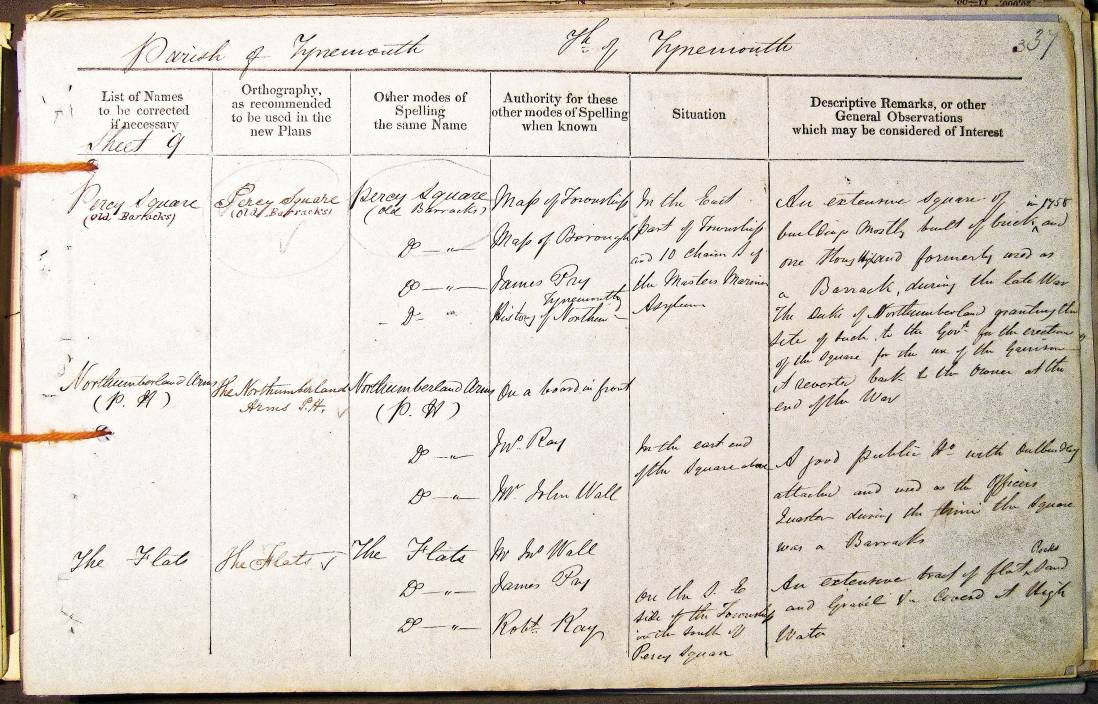 Parish of Tynemouth Th of Tynemouth 337
List of Names
to be corrected
if necessary
Orthography,
as recommended
to be used in the
new Plans
Other modes of
Spelling
the same Name
Authority for these
other modes of Spelling
when known
Situation
Descriptive Remarks, or other
General Observations
which may be considered of Interest
Sheet 9
Percy Square
(Old Barracks)
Percy Square
(Old Barracks)
Percy Square
(Old Barracks)
Do — " —
Do — " —
Do — "
Map of Township
Map of Borough
James Pry
Tynemouth
History of Northum
In the East
part of Township
and 10 chains S of
the Masters Mariner
Asylum
An extensive Square of
buildings Mostly built of brick, in 1758 and
one Thous and formerly used as
a Barrack, during the late War
The Duke of Northumberland granting the
Site of such to the Govt. for the erection
of the Square for the use of the Garrison
it reverted back to the Owner at the
end of the War
Northumberland Arms
(P. H)
The Northumberland
Arms P.H.
Northumberland Arms
(P. H)
Do — " —
Do — " —
On a board in front
Ray
Mr John Wall
In the east end
of the Square above
A good public Ho with Outbuildings
attached and used as the Officers
Quarters during the time the Square
was a Barracks
The Flats
The Flats
The Flats
Do — " —
Do — " —
Mr Jno Wall
James Pry
Robt. Kay
On the S. E
side of the Township
in the South of
Percy Square
An extensive tract of flat Rocks Sand
and Gravel &c Covered at High
Water